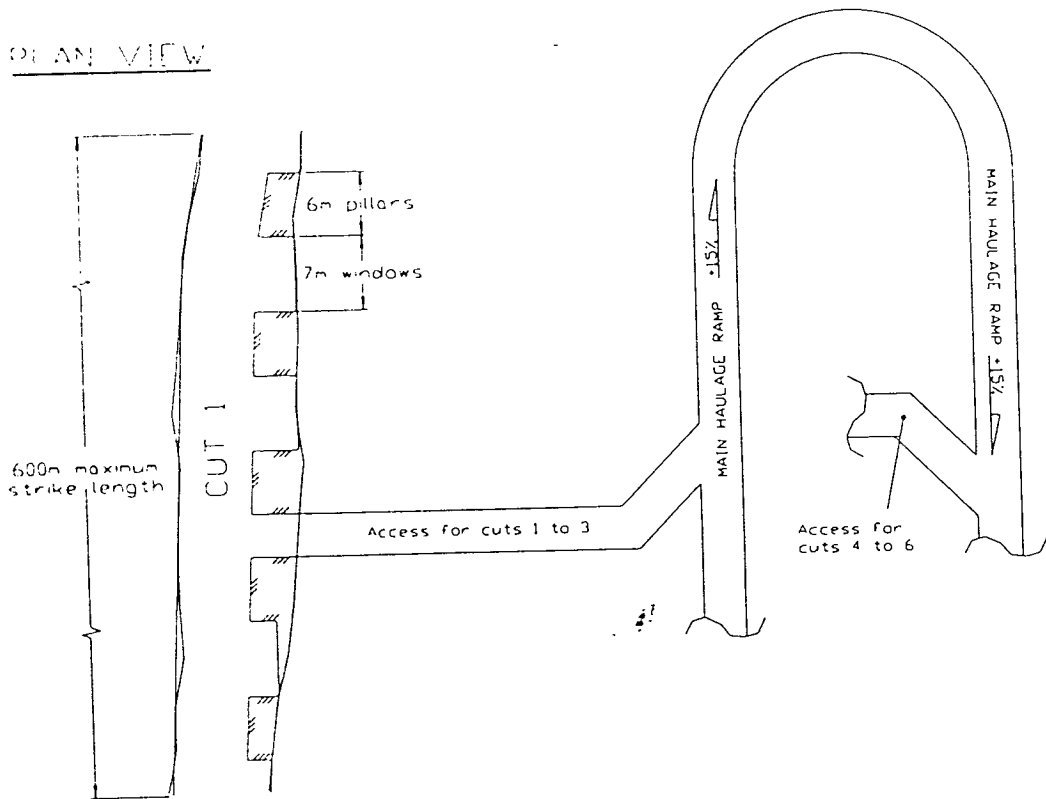 PLAN VIEW
6m pillars
7m windows
CUT 1
600m maximum
strike length
Access for cuts 1 to 3
MAIN HAULAGE RAMP +15%
MAIN HAULAGE RAMP +15%
Access for
cuts 4 to 6